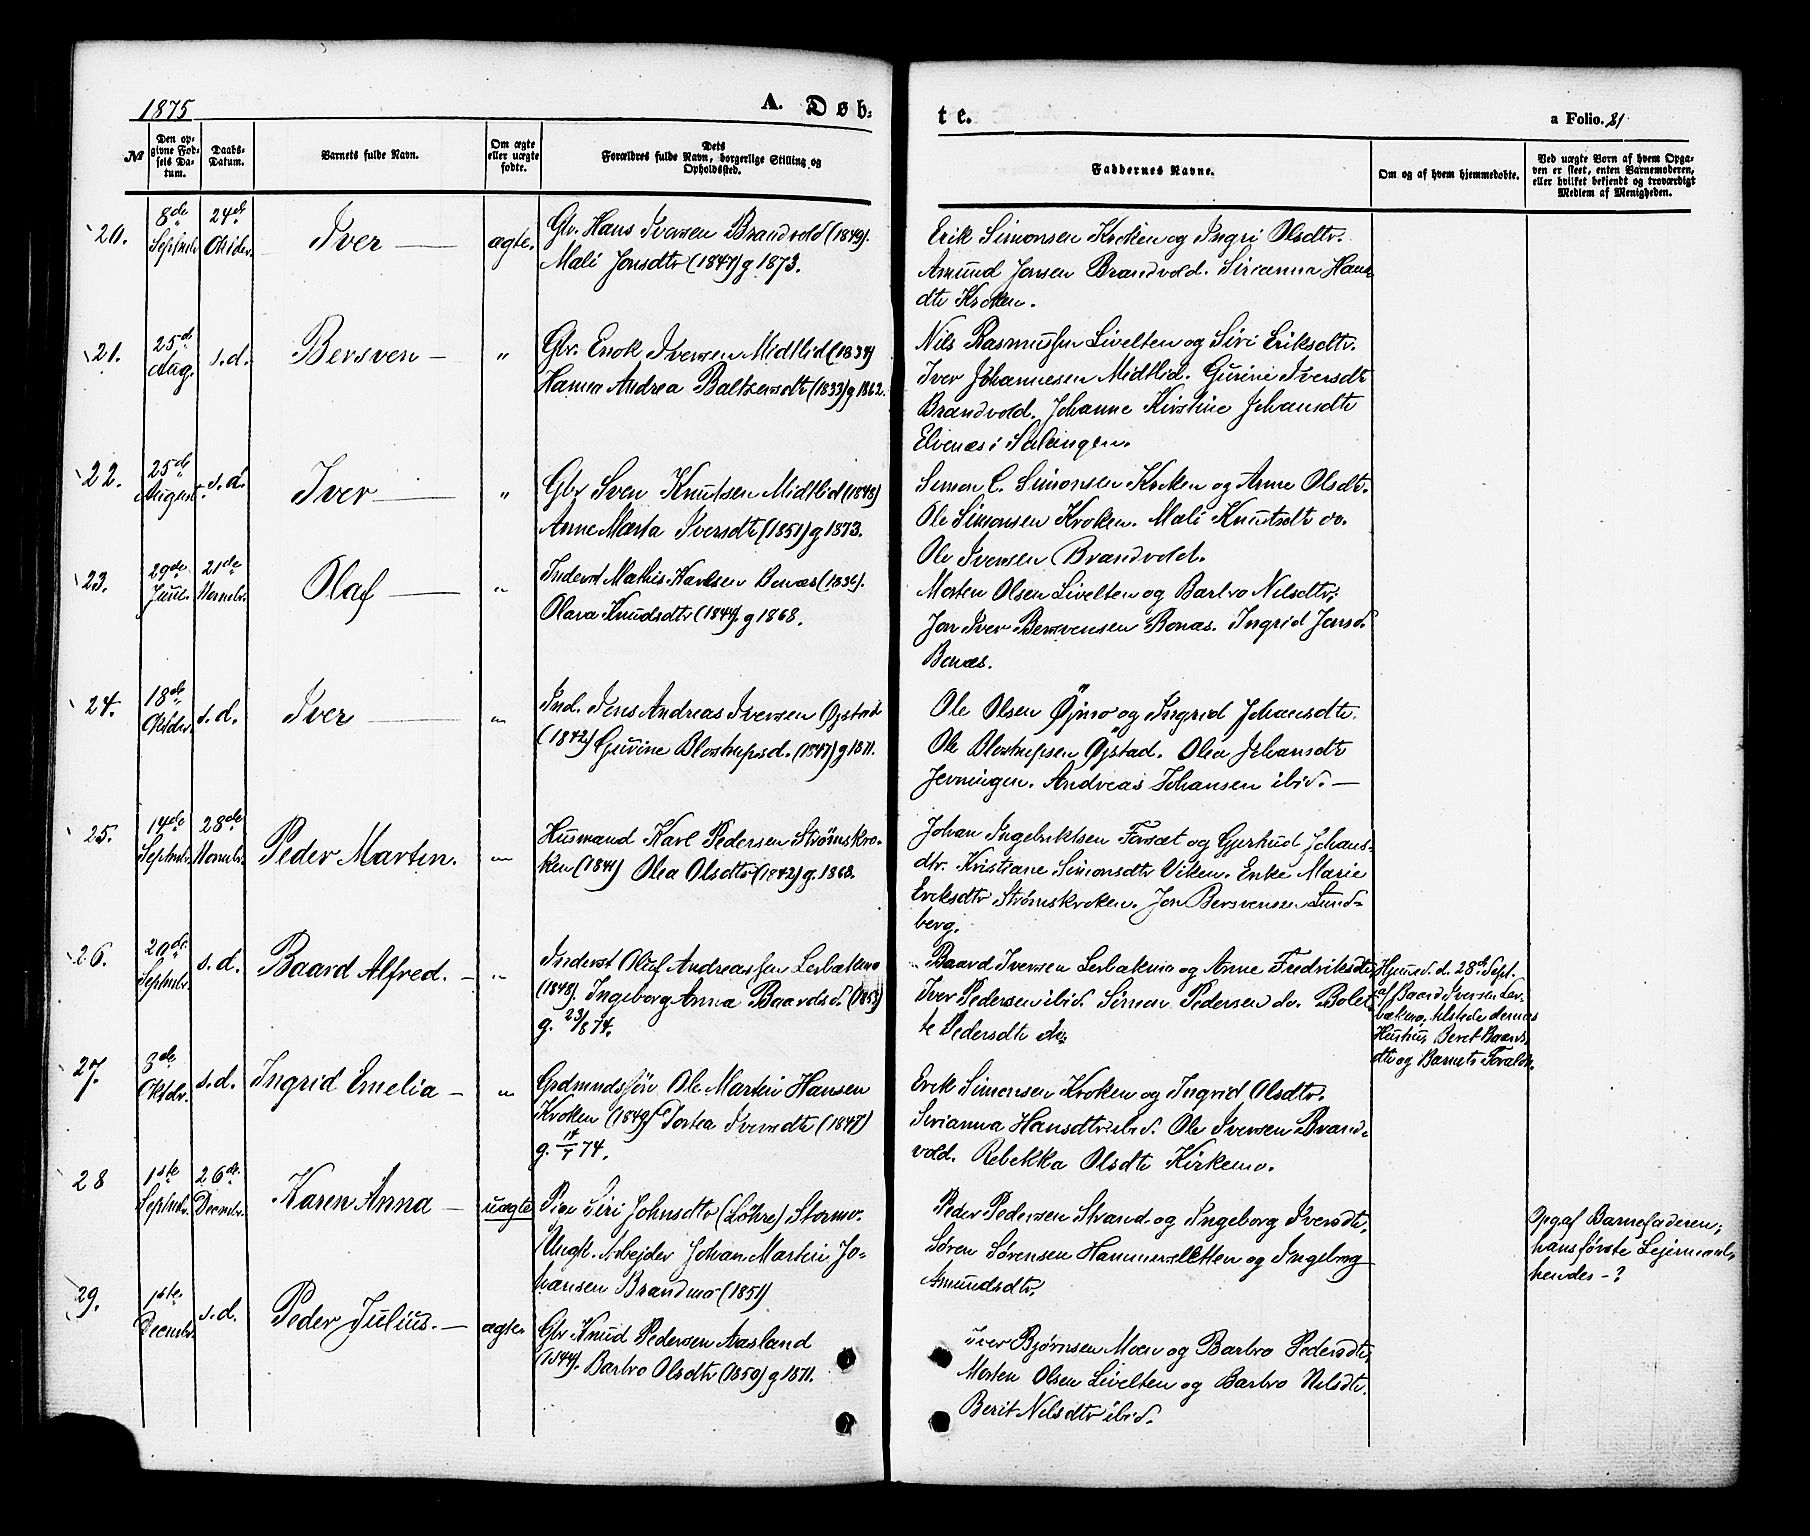 1875
A. Døb-
te.
a Folio. 21
№
Den op-
givne Fød-
sels Da-
tum.
Daabs-
Datum.
Barnets fulde Navn.
Om ægte
eller uægte
fødte.
Dets
Forældres fulde Navn, borgerlige Stilling og
Opholdssted.
Faddernes Navne.
Om og af hvem hjemmedøbte.
Ved uægte Børn af hvem Opga-
ven er skeet, enten Barnemoderen,
eller hvilket bekjendt og troværdigt
Medlem af Menigheden.
20.
8de
Septmbr.
24de
Oktober.
Iver
ægte.
Gbr. Hans Iversen Brandvold (1849).
Mali Jonsdtr (1847) g 1873.
Erik Simonsen Kroken og Ingri Olsdtr.
Amund Jonsen Brandvold. Sirianna Hans-
dtr Kroken.
21.
25de
Aug.
s.d.
Bersven
"
Gbr. Enok Iversen Midtlid (1834)
Hanna Andrea Baltzersdtr (1833) g 1862.
Nils Rasmussen Livelten og Siri Eriksdtr.
Iver Johannesen Midtlid. Gurine Iversdtr
Brandvold. Johanne Kirstine Johansdtr
Elvenæs i Salangen.
22.
25de
August
s.d.
Iver
"
Gbr Sven Knutsen Midtlid (1848)
Anne Marta Iversdtr (1851) g 1873.
Simon C. Simonsen Kroken og Anne Olsdtr.
Ole Simonsen Kroken. Mali Knutsdtr do.
Ole Iversen Brandvold.
23.
29de
Juni.
21de
Novmbr.
Olaf
"
Inderst Mathis Karlsen Bonæs (1836).
Olava Knudsdtr (1844) g 1868.
Morten Olsen Livelten og Barbro Nilsdtr.
Jon Iver Bersvensen Bonæs. Ingrid Jonsd.
Bonæs.
24.
18de
Oktbr.
s.d.
Iver
"
Ind. Jens Andreas Iversen Øjstad
(1842) Gjurine Blostrupsd. (1847) g 1871.
Ole Olsen Øjmo og Ingrid Johansdtr.
Ole Blostrupsen Øjstad. Olea Johansdtr
Jevningen. Andreas Johansen ibid.
25.
14de
Septmbr.
28de
Novmbr.
Peder Martin.
"
Husmand Karl Pedersen Strømskro-
ken (1841) Olea Olsdtr (1842) g. 1868.
Johan Ingebriktsen Forsæt og Gjertrud Johans-
dtr. Kristiane Simonsdtr Viken. Enke Marie
Eriksdtr Strømskroken. Jon Bersvensen Lund-
berg.
26.
20de
Septmbr.
s.d.
Baard Alfred.
"
Inderst Oluf Andreassen Lerbækmo
(1848). Ingeborg Anna Baardsd.
g. 23/8 74.
Baard Iversen Lerbækmo og Anne Fredriksdtr.
Iver Pedersen ibid. Simon Pedersen do. Bolet-
te Pedersdtr do.
Hjemmed. d. 28de Sept.
af Baard Iversen Ler-
bækmo, tilstede dennes
Hustru Beret Baards-
dtr og Barnets Foræld.
27.
3de
Oktbr.
s.d.
Ingrid Emelia
"
Grdmndssøn Ole Martin Hansen
Kroken (1849) Tortea Iversdtr (1847)
g. 74.
Erik Simonsen Kroken og Ingrid Olsdtr.
Sirianna Hansdtr ibid. Ole Iversen Brand-
vold. Rebekka Olsdtr Kirkemo.
28
1ste
Septmbr.
26de
Decmbr.
Karen Anna
uægte
Pige Siri Johnsdtr (Løhre) Stormo.
Ungk. Arbejder Johan Martin Jo-
hansen Brandmo (1851)
Peder Pedersen Strand og Ingeborg Iversdtr.
Søren Sørensen Hammersletten og Ingeborg
Amundsdtr.
Opg af Barnefaderen;
hans første Lejermaal,
hendes - ?
29.
1ste
Decmbr.
s.d.
Peder Julius.
ægte.
Gbr Knud Pedersen Aasland
(1844). Barbro Olsdtr (1850) g 1871.
Iver Bjørnsen Moen og Barbro Pedersdtr.
Morten Olsen Livelten og Barbro Nilsdtr.
Berit Nilsdtr ibid.